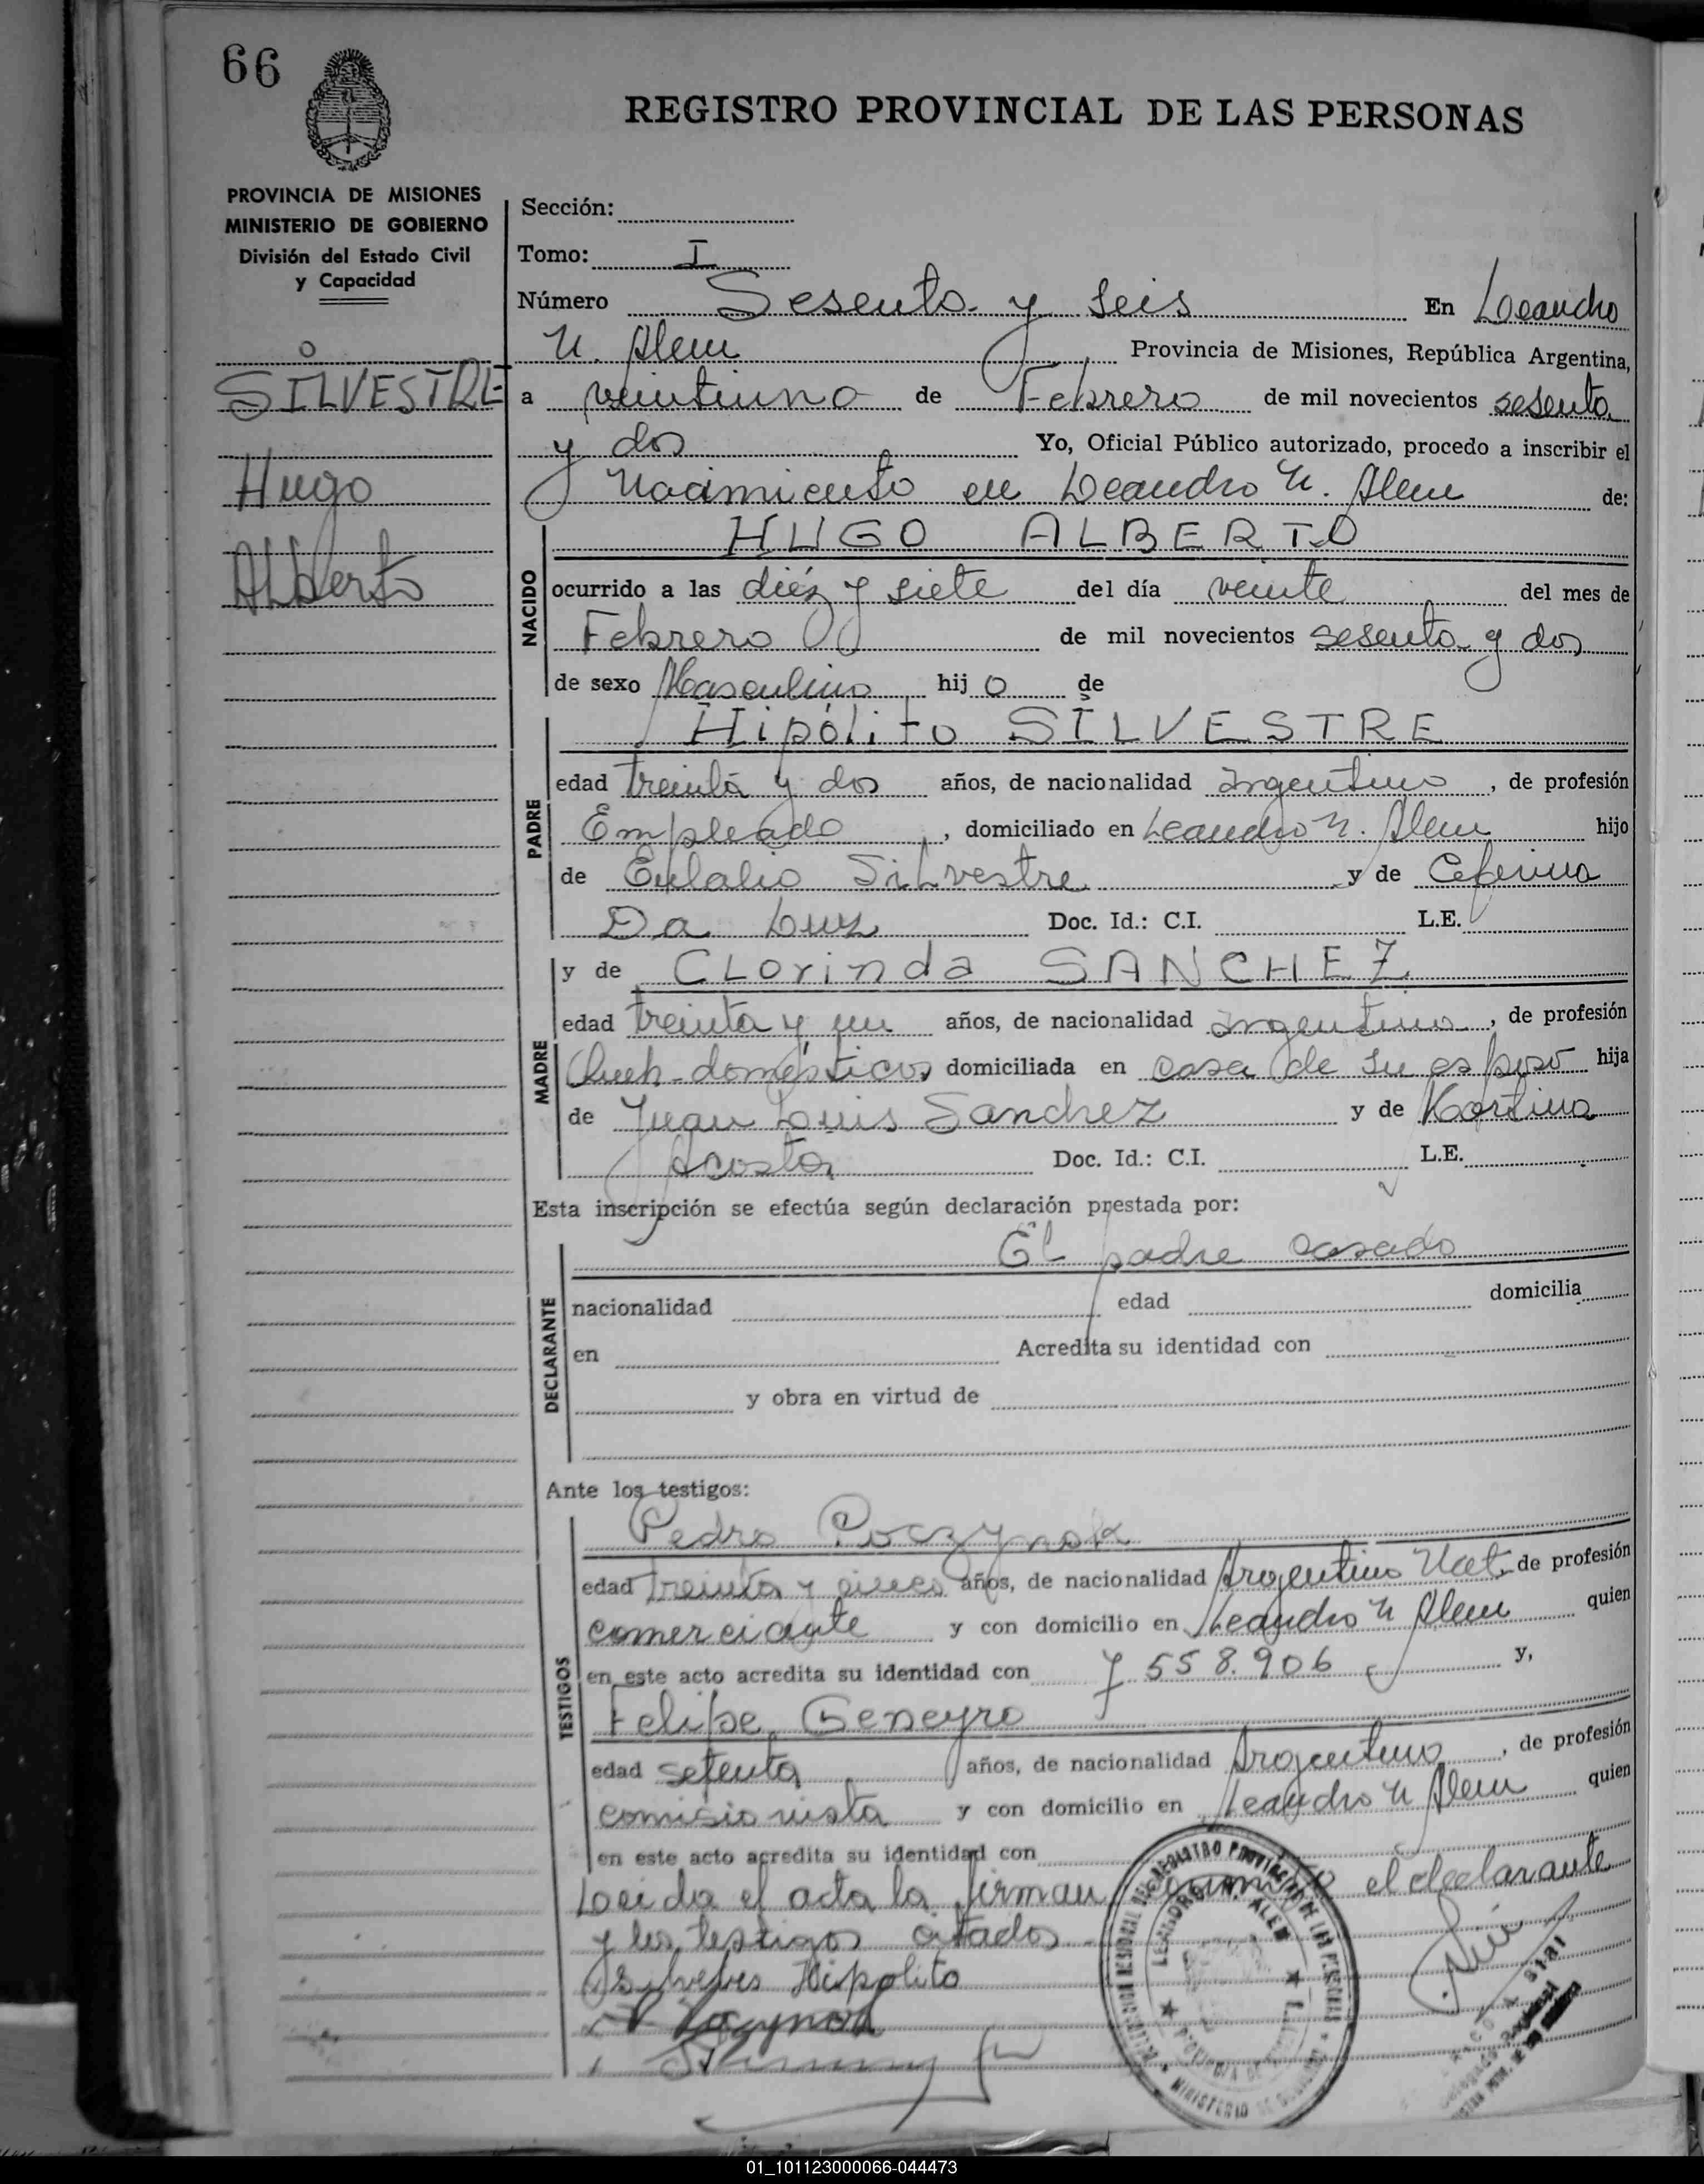 66
REGISTRO PROVINCIAL DE LAS PERSONAS
PROVINCIA DE MISIONES
MINISTERIO DE GOBIERNO
División del Estado Civil
y Capacidad
SILVESTRE
Hugo
Alberto
Sección:
Tomo: I
Número Sesenta y seis En Leandro
N. Alem Provincia de Misiones, República Argentina,
a veintiuno de Febrero de mil novecientos sesenta
y dos Yo, Oficial Público autorizado, procedo a inscribir el
Nacimiento en Leandro N. Alem de:
NACIDO
HUGO ALBERTO
ocurrido a las diéz y siete del día veinte del mes de
Febrero de mil novecientos sesenta y dos
de sexo Masculino hijo de
PADRE
Hipólito SILVESTRE
edad treinta y dos años, de nacionalidad argentino, de profesión
Empleado, domiciliado en Leandro N. Alem hijo
de Eulalio Silvestre y de Ceferina
Da Luz Doc. Id.: C.I. L.E.
MADRE
y de CLorinda SANCHEZ
edad treinta y un años, de nacionalidad argentina, de profesión
Queh-domésticos domiciliada en casa de su esposo hija
de Juan Luis Sanchez y de
Acosta Doc. Id.: C.I. L.E.
Esta inscripción se efectúa según declaración prestada por:
DECLARANTE
El padre casado
nacionalidad edad domicilia
en Acredita su identidad con
y obra en virtud de
Ante los testigos:
TESTIGOS
Pedro Poczynok
edad treinta y cinco años, de nacionalidad Argentino Nat. de profesión
comerciante y con domicilio en Leandro N Alem quien
en este acto acredita su identidad con 7 558.906 y,
Felipe Geneyro
edad setenta años, de nacionalidad Argentino, de profesión
comisionista y con domicilio en Leandro N Alem quien
en este acto acredita su identidad con
Leida el acta la firman conmigo el declarante
y los testigos citados
Hipolito
01_101123000066-044473